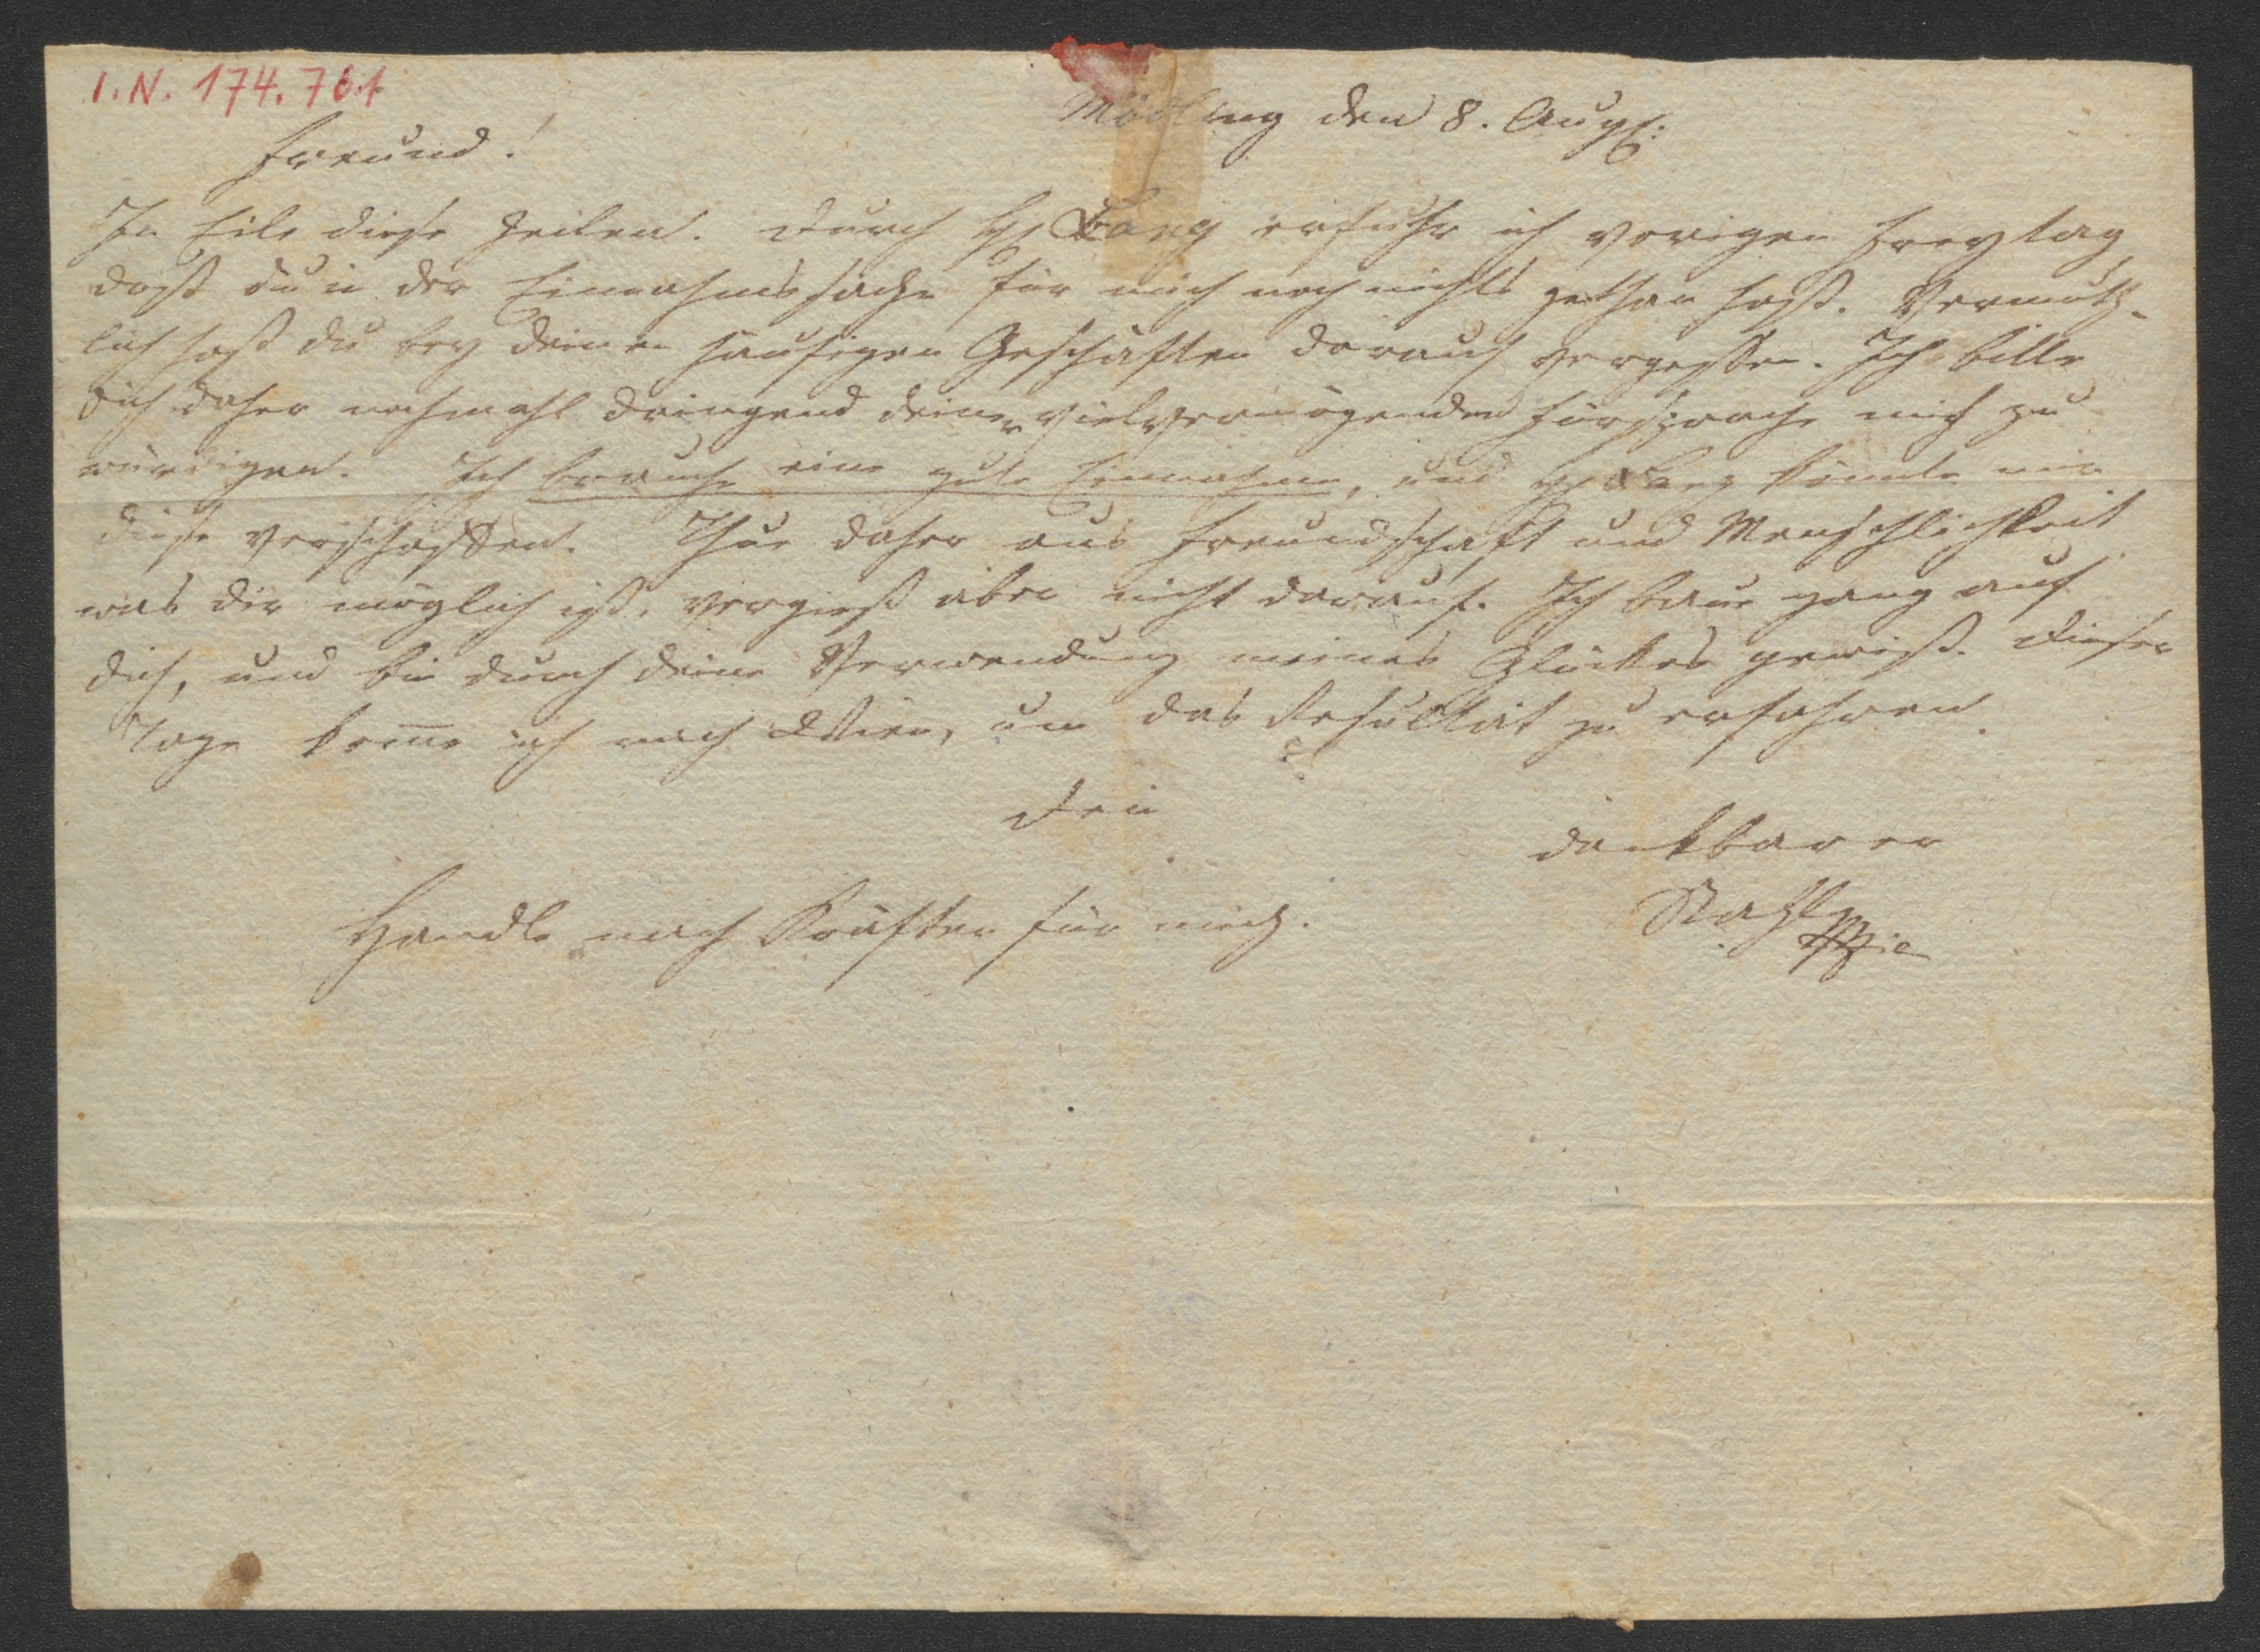 I.N. 174.761
Mödling den 8. Aug:
Freund!
In Eile diese Zeilen. Durch H Lang erfuhr ich vorigen Freytag,
daß du in der Einnahmssache für mich noch nichts gethan hast. Vermuth-
lich hast du bey deinen häufigen Geschäften darauf vergessen. Ich bitte
dich daher nochmahl dringend deiner vielvermögenden Fürsprache mich zu
würdigen. Ich brauche eine gute Einnahme, und H Lang könnte mir
diese verschaffen. Thue daher aus Freundschaft und Menschlichkeit
was dir möglich ist, vergiß aber nicht darauf. Ich baue ganz auf
dich, und bin durch deine Verwendung meines Glückes gewiß. Dieser
Tage kom̅e ich nach Wien, um das Resultat zu erfahren.
Dein
dankbarer
Stahl
Handle nach Kräften für mich.